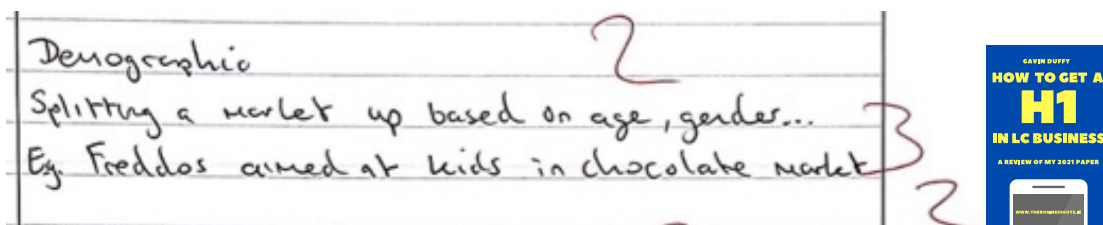 Demographic 2
Splitting a market up based on age, gender... 3
Eg. Freddos aimed at kids in chocolate market
2
GAVIN DUFFY
HOW TO GET A
H1
IN LC BUSINESS
A REVIEW OF MY 2021 PAPER
WWW.THEBUSINESSGUYS.IE